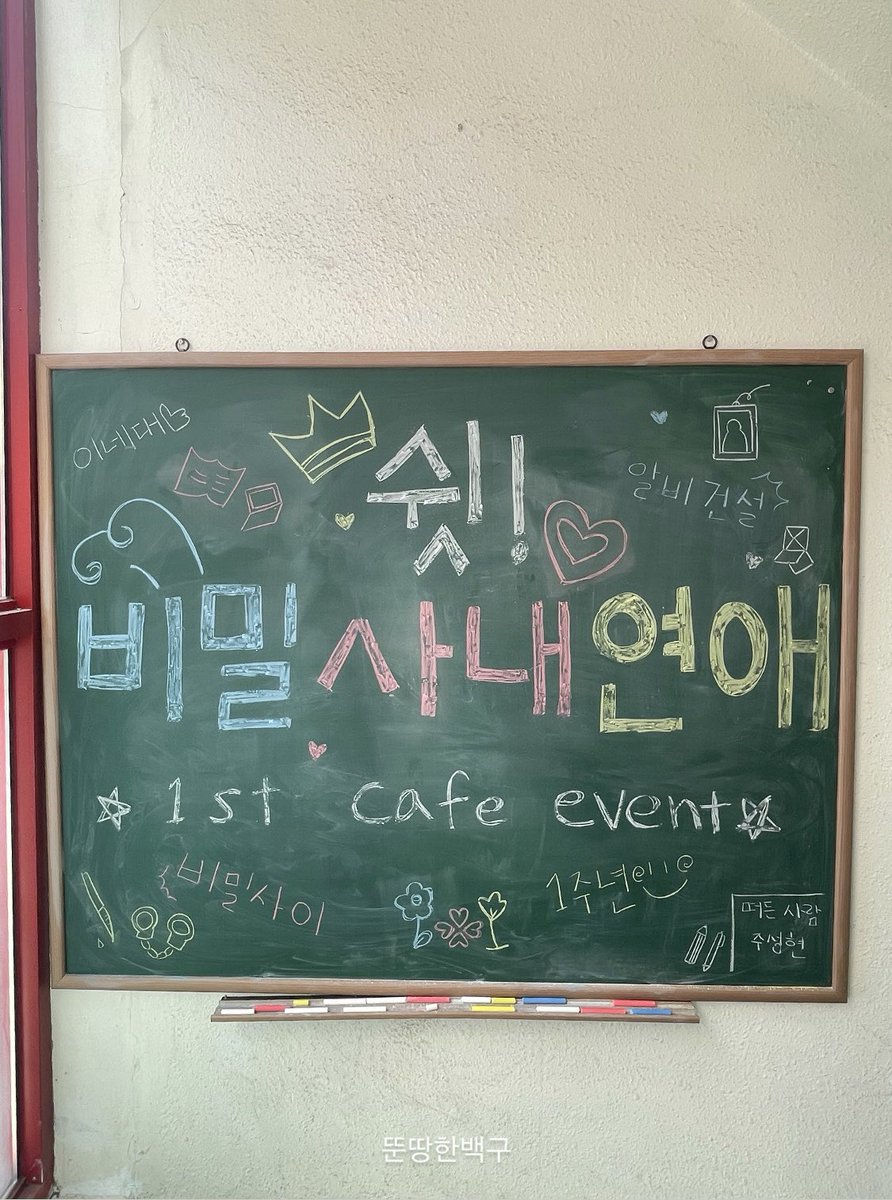 이네대
쉿!
알비건설
비밀사내연애
1st cafe event
비밀사이
1주년
떠든 사람
주성현
뚠땅한백구